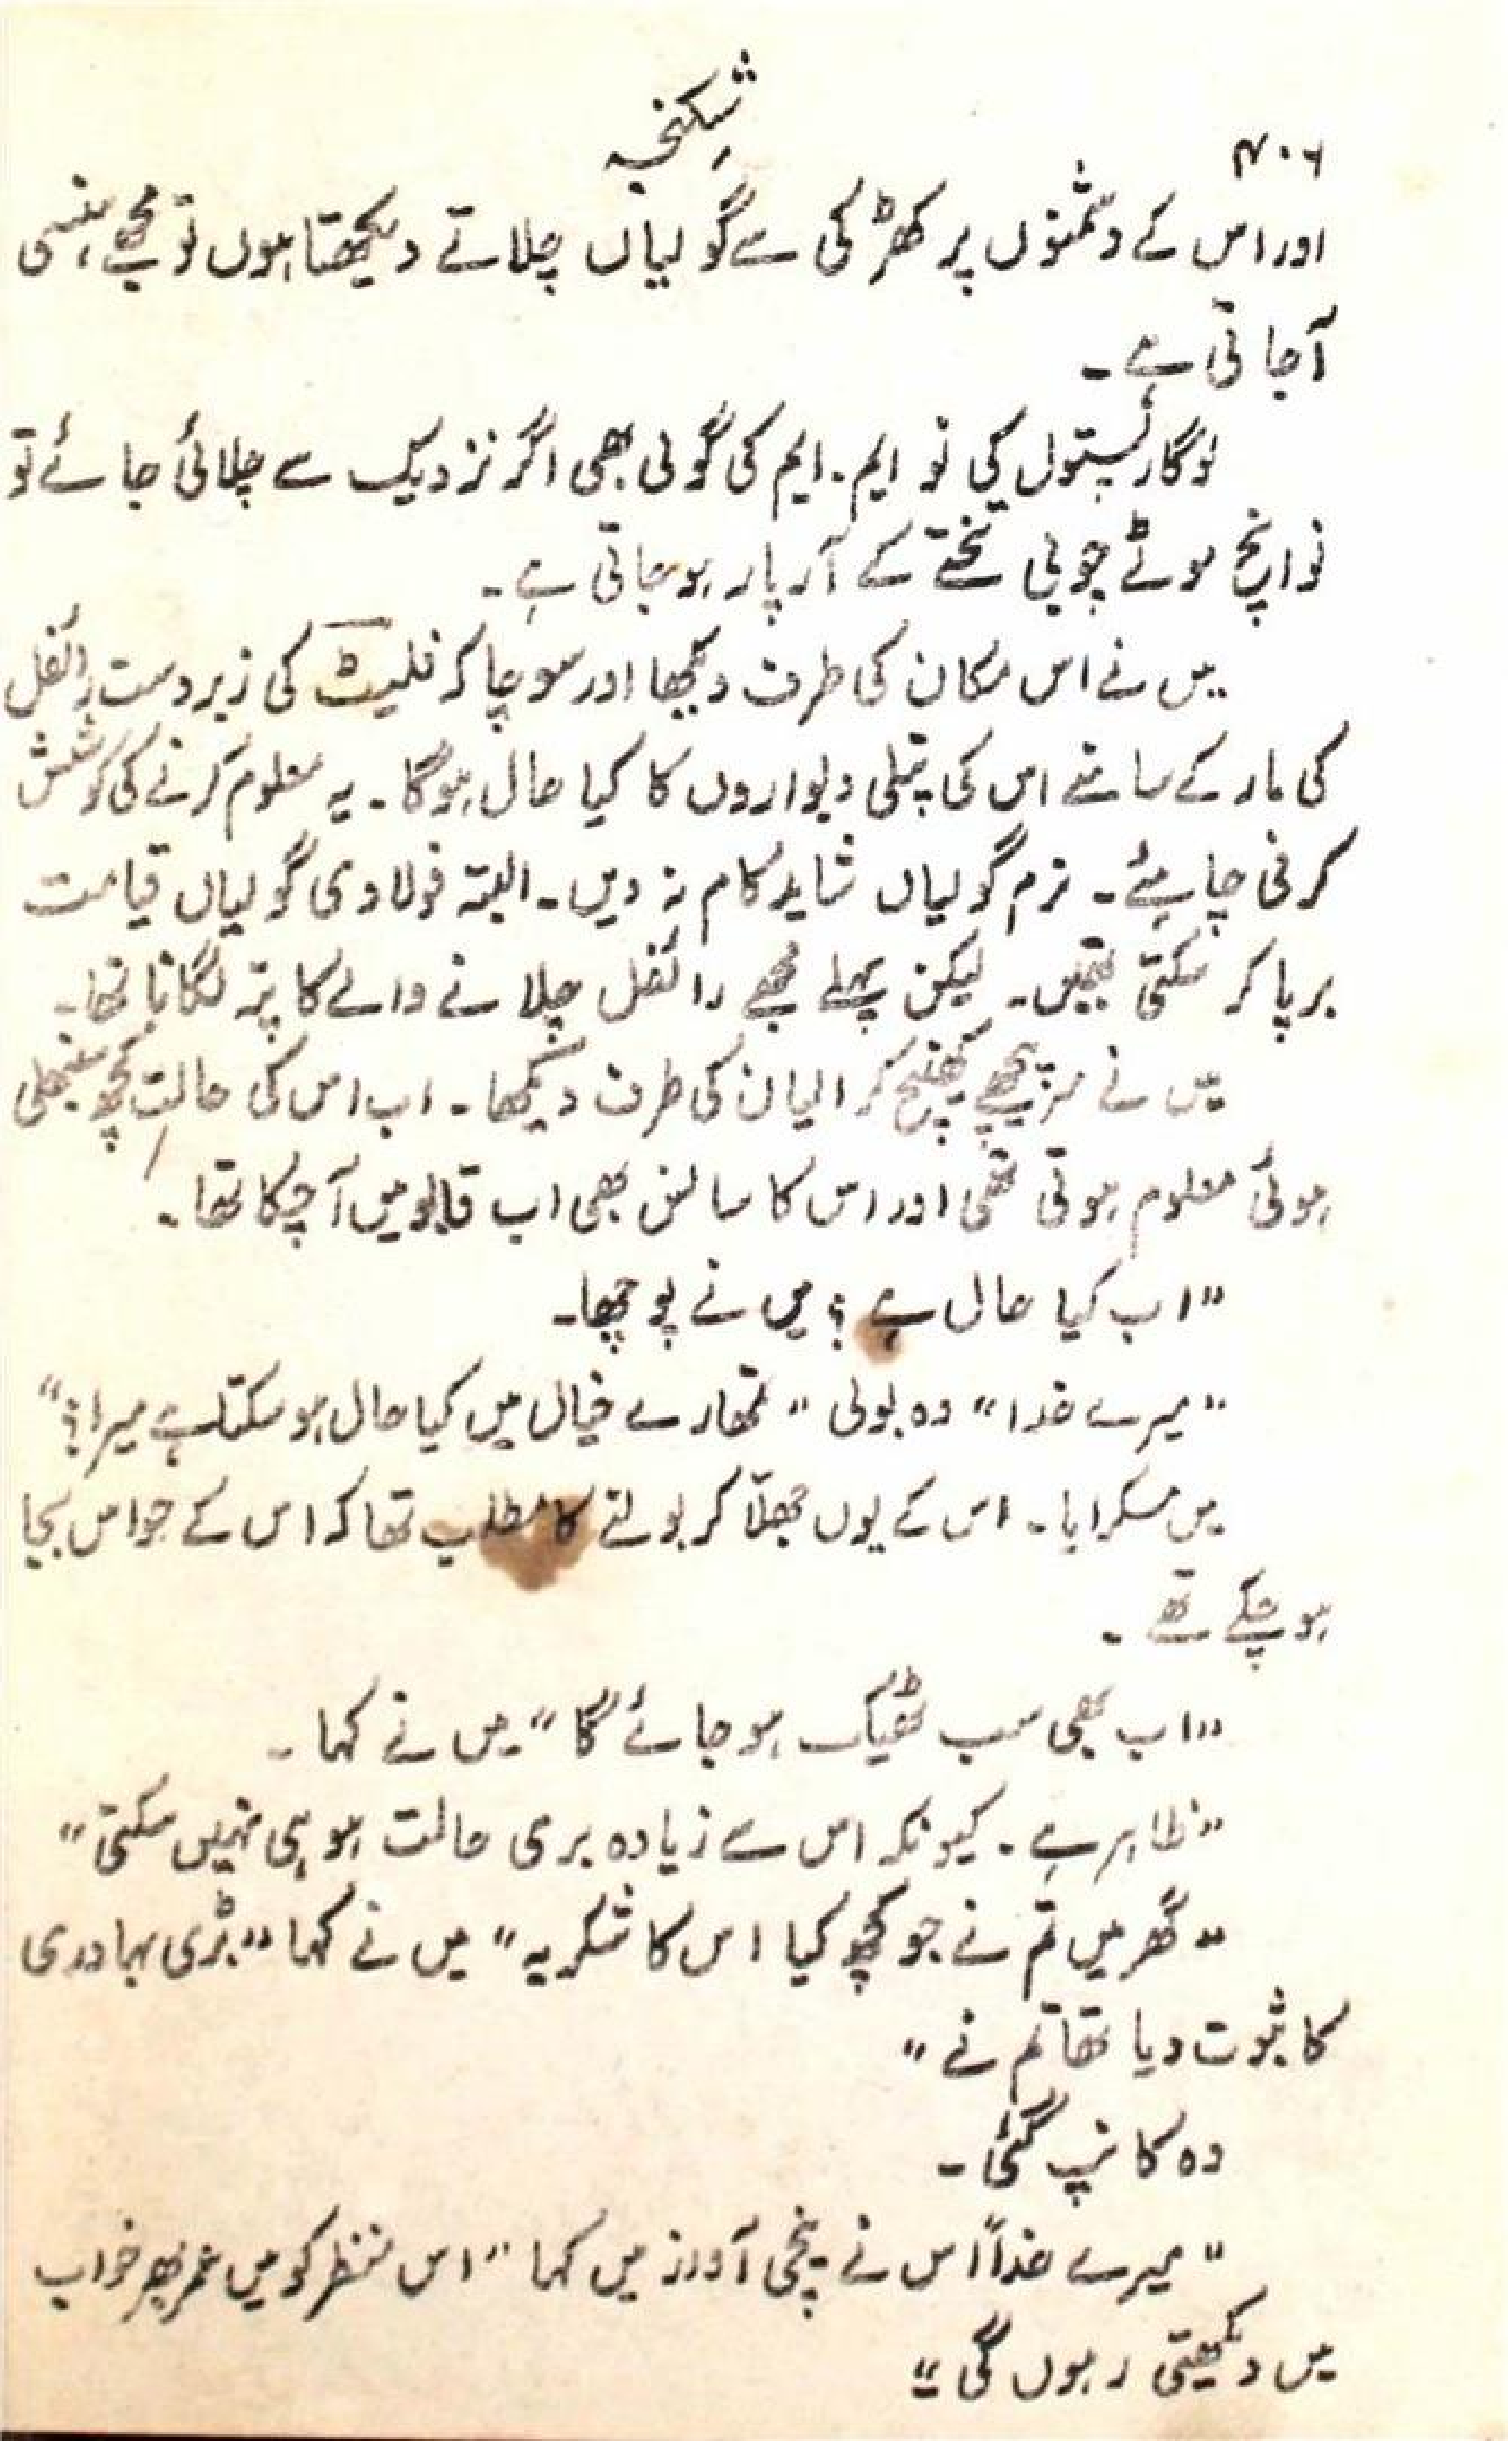 شکنجہ
۴۰۶
اور اس کے دشمنوں پر کھڑکی سے گولیاں چلاتے دیکھتا ہوں تو مجھے ہنسی
آجاتی ہے۔
لوگار پستول کی نو ایم۔ ایم کی گولی بھی اگر نزدیک سے چلائی جائے تو
نو انچ موٹے چوبی تختے کے آر پار ہو جاتی ہے۔
میں نے اس مکان کی طرف دیکھا اور سوچا کہ فلیٹ کی زبردست رائفل
کی مار کے سامنے اس کی پتلی دیواروں کا کیا حال ہوگا۔ یہ معلوم کرنے کی کوشش
کرنی چاہیئے۔ نرم گولیاں شاید کام نہ دیں۔ البتہ فولادی گولیاں قیامت
برپا کر سکتی تھیں۔ لیکن پہلے مجھے رائفل چلانے والے کا پتہ لگانا تھا۔
میں نے سر پیچھے کھینچ کر الیان کی طرف دیکھا۔ اب اس کی حالت کچھ سنبھلی
ہوئی معلوم ہوتی تھی اور اس کا سانس بھی اب قابو میں آچکا تھا۔
”اب کیا حال ہے؟ میں نے پوچھا۔
”میرے خدا“ وہ بولی ”تمھارے خیال میں کیا حال ہو سکتا ہے میرا؟“
میں مسکرایا۔ اس کے یوں جھلّا کر بولنے کا مطلب تھا کہ اس کے حواس بجا
ہو چکے تھے۔
”اب بھی سب ٹھیک ہو جائے گا“ میں نے کہا۔
”ظاہر ہے۔ کیونکہ اس سے زیادہ بری حالت ہو ہی نہیں سکتی“
”گھر میں تم نے جو کچھ کیا اس کا شکریہ“ میں نے کہا ”بڑی بہادری
کا ثبوت دیا تھا تم نے“
وہ کانپ گئی۔
”میرے خدا“ اس نے نیچی آواز میں کہا ”اس منظر کو میں عمر بھر خواب
میں دیکھتی رہوں گی“